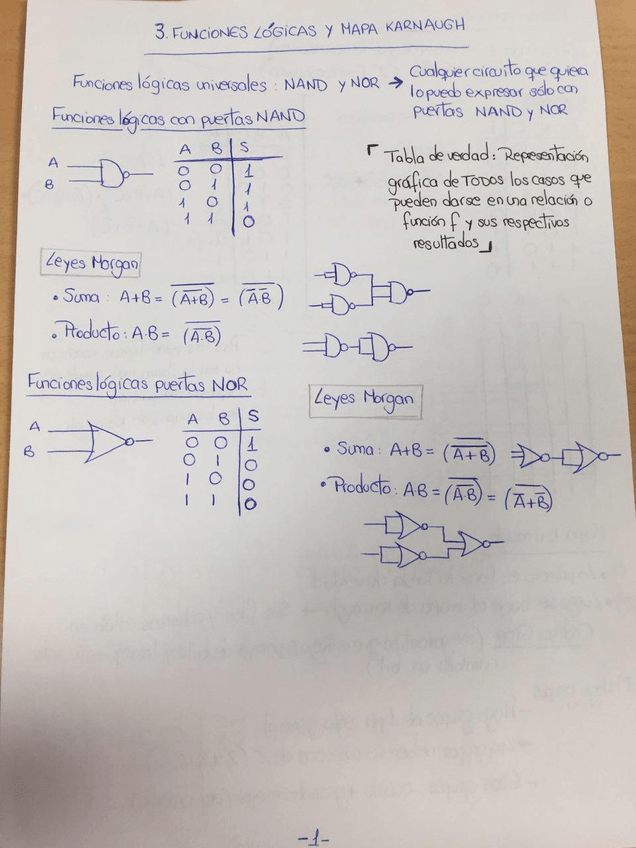 3. FUNCIONES LÓGICAS Y MAPA KARNAUGH
Funciones lógicas universales: NAND y NOR → Cualquier circuito que quiera
lo puedo expresar sólo con
puertas NAND y NOR
Funciones lógicas con puertas NAND
A B S
0 0 1
0 1 1
1 0 1
1 1 0
A
B
「Tabla de verdad: Representación
gráfica de TODOS los casos que
pueden darse en una relación o
función f y sus respectivos
resultados」
Leyes Morgan
• Suma: A+B = (A̅+̅B̅)̅ = (A̅ B̅)̅
• Producto: A·B = (A̅·̅B̅)̅
Funciones lógicas puertas NOR
A
B
A B S
0 0 1
0 1 0
1 0 0
1 1 0
Leyes Morgan
• Suma: A+B = (A̅+̅B̅)̅
• Producto: A·B = (A̅·̅B̅)̅ = (A̅+B̅)̅
-1-